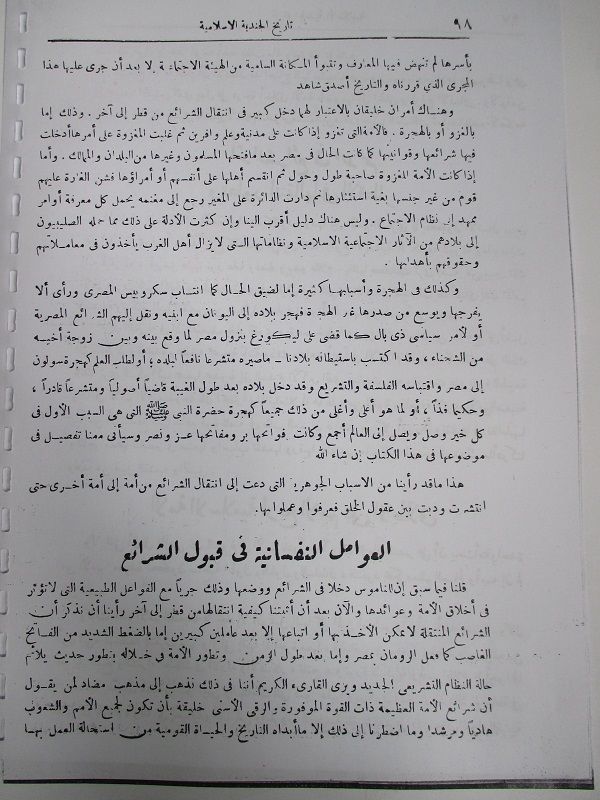 ٩٨ تاريخ الجندية الاسلامية
بأسرها لم تنهض فيها المعارف وتتبوأ المكانة السامية من الهيئة الاجتماعية إلا بعد أن جرى عليها هذا
المجرى الذي قررناه والتاريخ أصدق شاهد
وهناك أمران خليقان بالاعتبار لهما دخل كبير فى انتقال الشرائع من قطر إلى آخر . وذلك إما
بالغزو أو بالهجرة . فالأمة التى تغزو إذا كانت على مدنية وعلم وافرين ثم غلبت المغزوة على أمرها أدخلت
فيها شرائعها وقوانينها كما كانت الحال فى مصر بعد مافتحها المسلمون وغيرها من البلدان والممالك . وأما
إذا كانت الأمة المغزوة صاحبة طول وحول ثم انقسم أهلها على أنفسهم أو أمراؤها فشن الغارة عليهم
قوم من غير جنسها بغية استثمارها ثم دارت الدائرة على المغير رجع إلى مغنمه يحمل كل معرفة أو أمر
يمهد إلى نظام الاجتماع . وليس هناك دليل أقرب الينا وإن كثرت الأدلة على ذلك مما حمله الصليبيون
إلى بلادهم من الآثار الاجتماعية الاسلامية ونظاماتها التى لايزال أهل الغرب يأخذون فى معاملاتهم
وحقوقهم بأهدابها .
وكذلك فى الهجرة وأسبابها كثيرة إما لضيق الحال كما انتاب سكروبيس المصرى ورأى ألا
يفرجها ويوسع من صدرها غير الهجرة فهجر بلاده إلى اليونان مع ابنيه ونقل إليهم الشرائع المصرية
أو لأمر سياسى ذى بال كما قضى على ليكورغ بنزول مصر لما وقع بينه وبين زوجة أخيه
من الشحناء ، وقد اكتسب باستيطانه بلادنا ماصيره متشرعا نافعا لبلده ، أو لطلب العلم كهجرة سولون
إلى مصر واقتباسه الفلسفة والتشريع وقد دخل بلاده بعد طول الغيبة قاضياً أصولياً ومتشرعاً قادراً ،
وحكيما فذاً ، أو لما هو أعلى وأغلى من ذلك جميعاً كهجرة حضرة النبى ﷺ التى هى السبب الأول فى
كل خير وصل ويصل إلى العالم أجمع وكانت فواتحها بر ومفاتحها عز ونصر وسيأتى معنا تفصيل فى
موضوعها فى هذا الكتاب إن شاء الله
هذا ماقد رأينا من الاسباب الجوهرية التى دعت إلى انتقال الشرائع من أمة إلى أمة أخرى حتى
انتشرت ودبت بين عقول الخلق فعرفوا وعملوا بها.
العوامل النفسانية فى قبول الشرائع
قلنا فيما سبق إن للناموس دخلا فى الشرائع ووضعها وذلك جرياً مع الفواعل الطبيعية التى لاتؤثر
فى أخلاق الأمة وعوائدها والآن بعد أن أثبتنا كيفية انتقالها من قطر إلى آخر رأينا أن نذكر أن
الشرائع المنتقلة لا يمكن الأخذ بها أو اتباعها إلا بعد عاملين كبيرين إما بالضغط الشديد من الفاتح
الغاصب كما فعل الرومان بمصر وإما بعد طول الزمن وتطور الأمة فى خلاله بتطور حديث يلائم
حالة النظام التشريعى الجديد ويرى القارىء الكريم أننا فى ذلك نذهب إلى مذهب مضاد لمن يقول
أن شرائع الأمة العظيمة ذات القوة الموفورة والرقى الأسنى خليقة بأن تكون لجميع الأمم والشعوب
هادياً ومرشدا وما اضطرنا إلى ذلك إلا ماأبداه التاريخ والحياة القومية من استحالة العمل بهما